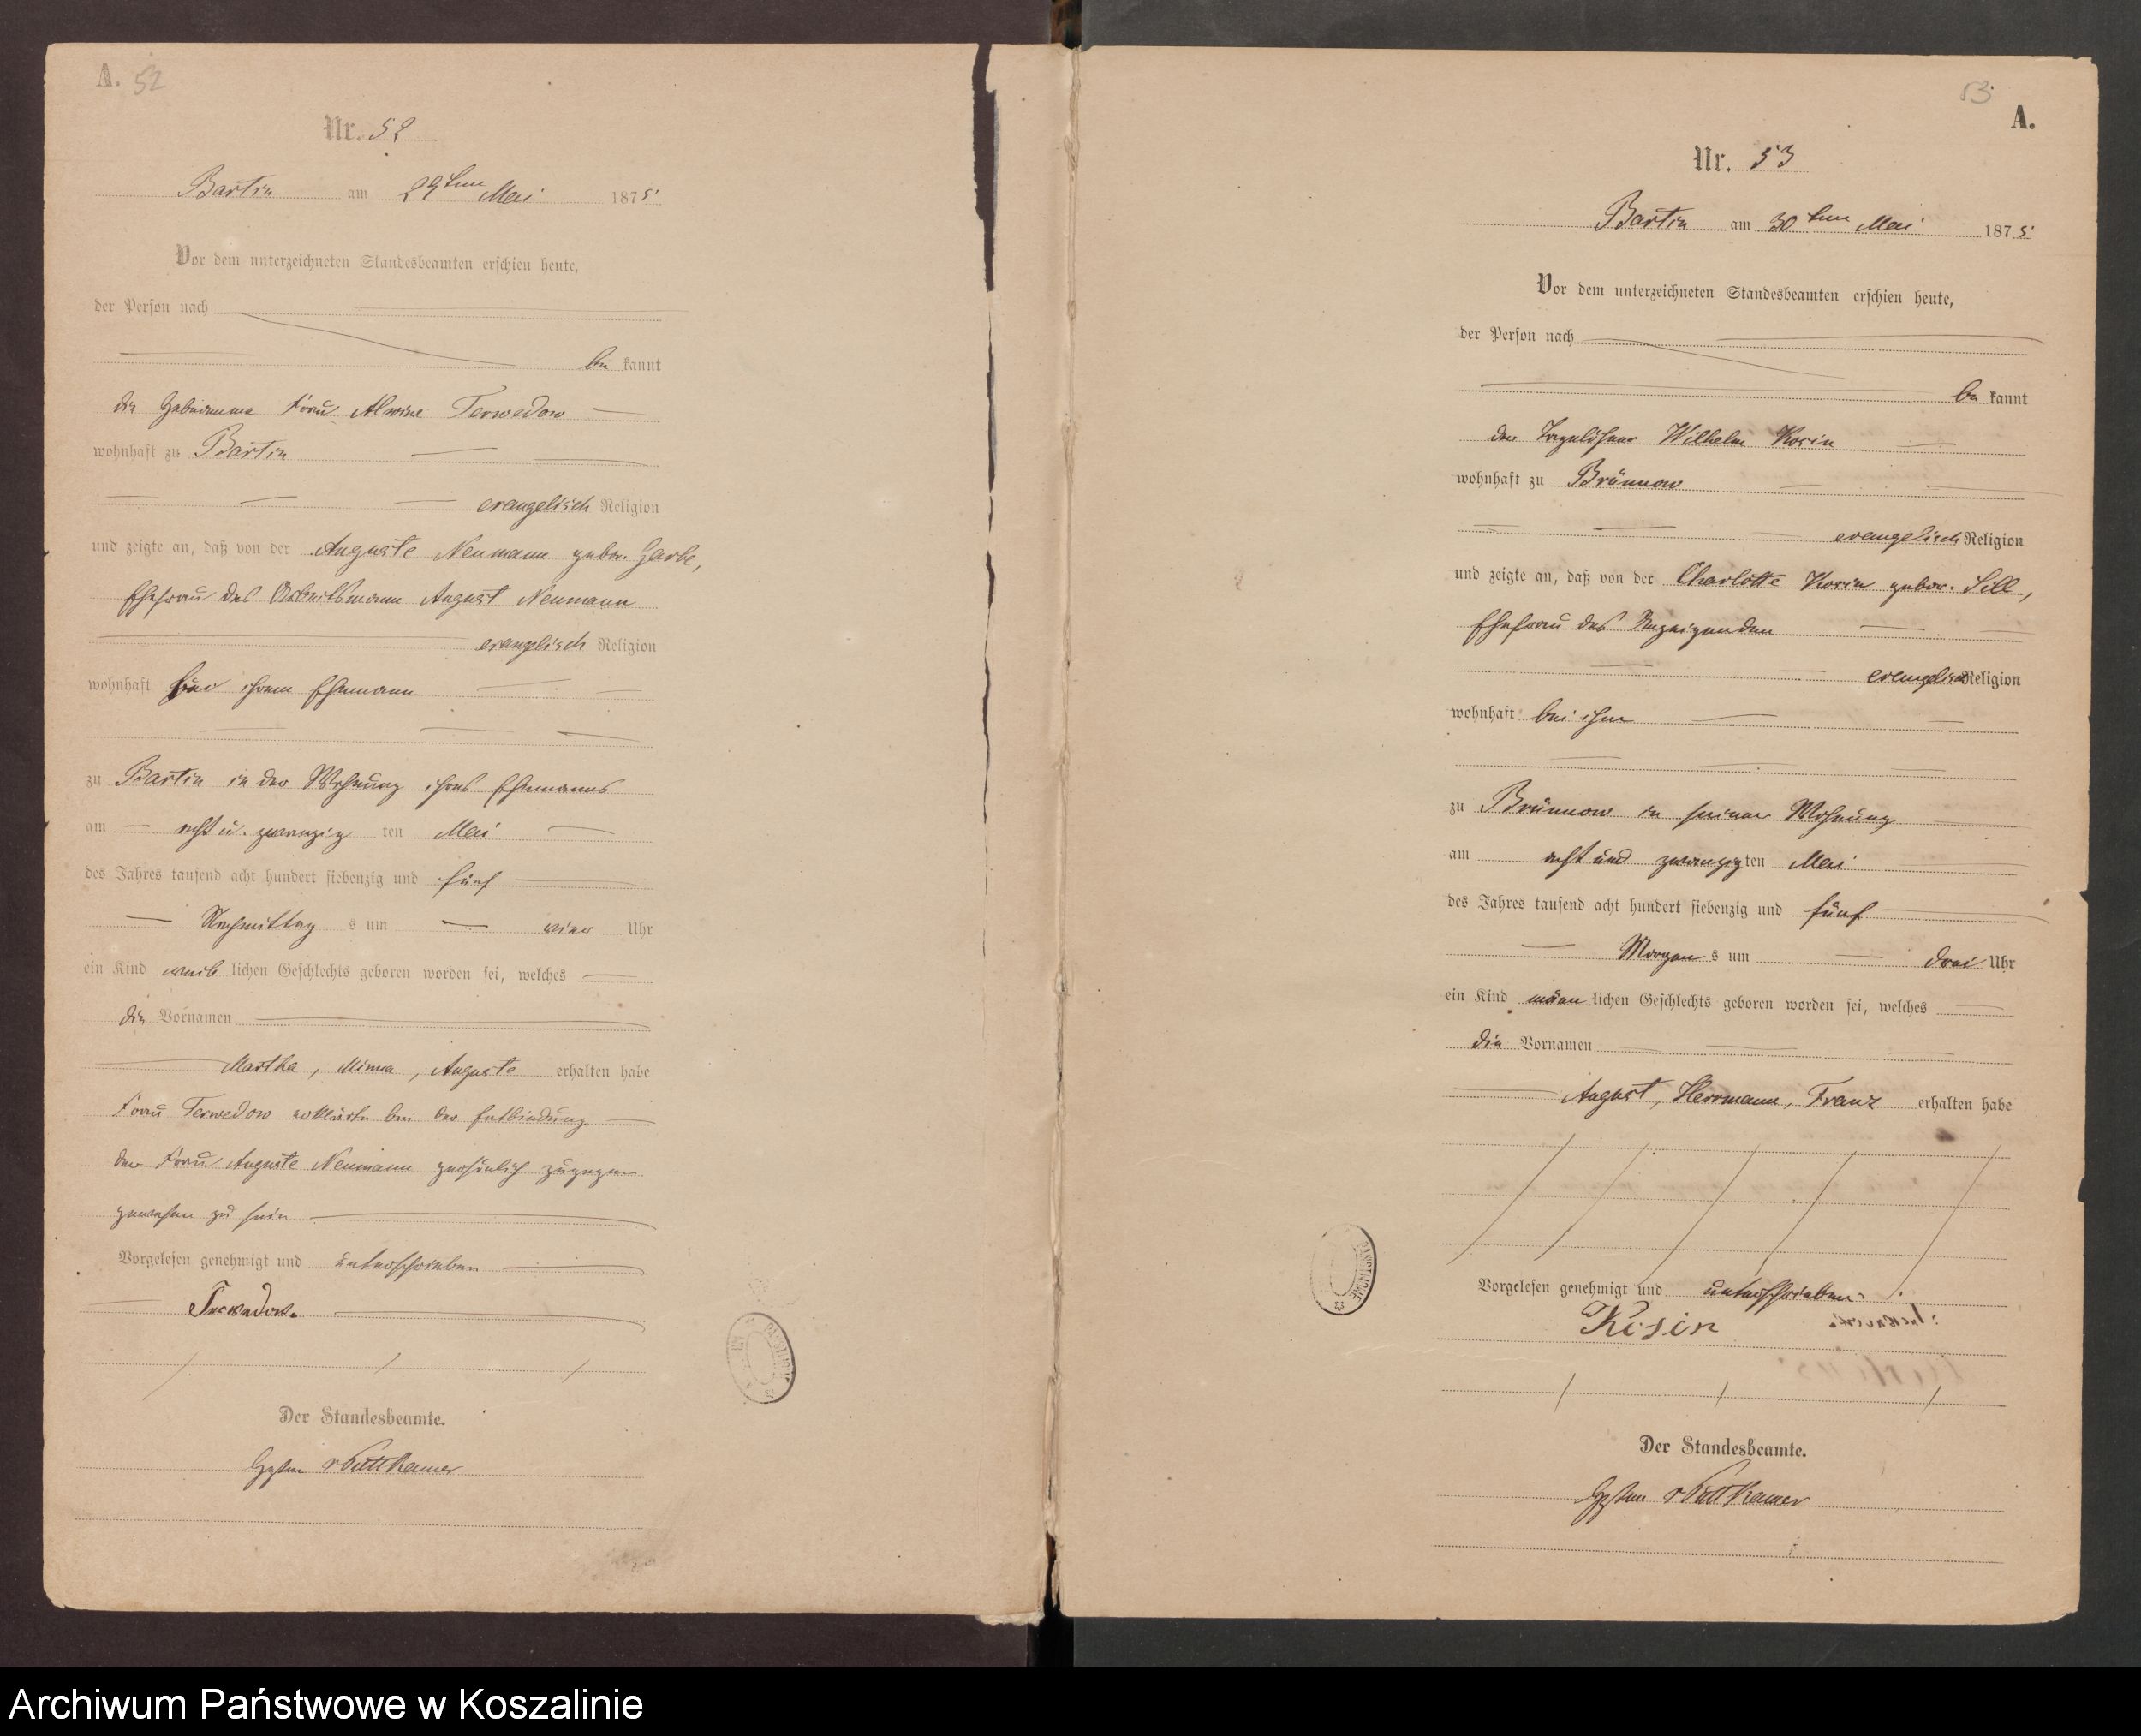 A. 52
Nr. 52
Bartin am 29ten Mai 1875
Vor dem unterzeichneten Standesbeamten erschien heute,
der Person nach
be kannt
die Hebeamme Frau Alwine Terwedow
wohnhaft zu Bartin
evangelisch Religion
und zeigte an, daß von der Auguste Neumann gebor. Garbe,
Ehefrau des Arbeitsmann August Neumann
evangelisch Religion
wohnhaft bei ihrem Ehemann
zu Bartin in der Wohnung ihres Ehemanns
am acht u. zwanzig ten Mai
des Jahres tausend acht hundert siebenzig und fünf
Nachmittag s um vier Uhr
ein Kind weib lichen Geschlechts geboren worden sei, welches
die Vornamen
Martha, Minna, Auguste erhalten habe
Frau Terwedow erklärte bei der Entbindung
der Frau Auguste Neumann persönlich zugegen
gewesen zu sein
Vorgelesen genehmigt und unterschrieben
Terwedow.
Der Standesbeamte.
v Puttkamer
53
A.
Nr. 53
Bartin am 30ten Mai 1875
Vor dem unterzeichneten Standesbeamten erschien heute,
der Person nach
be kannt
der Tagelöhner Wilhelm Kosin
wohnhaft zu Brünnow
evangelisch Religion
und zeigte an, daß von der Charlotte Kosin gebor. Sell,
Ehefrau des Anzeigenden
evangelisch Religion
wohnhaft bei ihm
zu Brünnow in seiner Wohnung
am acht und zwanzig ten Mai
des Jahres tausend acht hundert siebenzig und fünf
Morgen s um drei Uhr
ein Kind männ lichen Geschlechts geboren worden sei, welches
die Vornamen
August, Herrmann, Franz erhalten habe
Vorgelesen genehmigt und unterschrieben
Kosin
Der Standesbeamte.
v Puttkamer
Archiwum Państwowe w Koszalinie